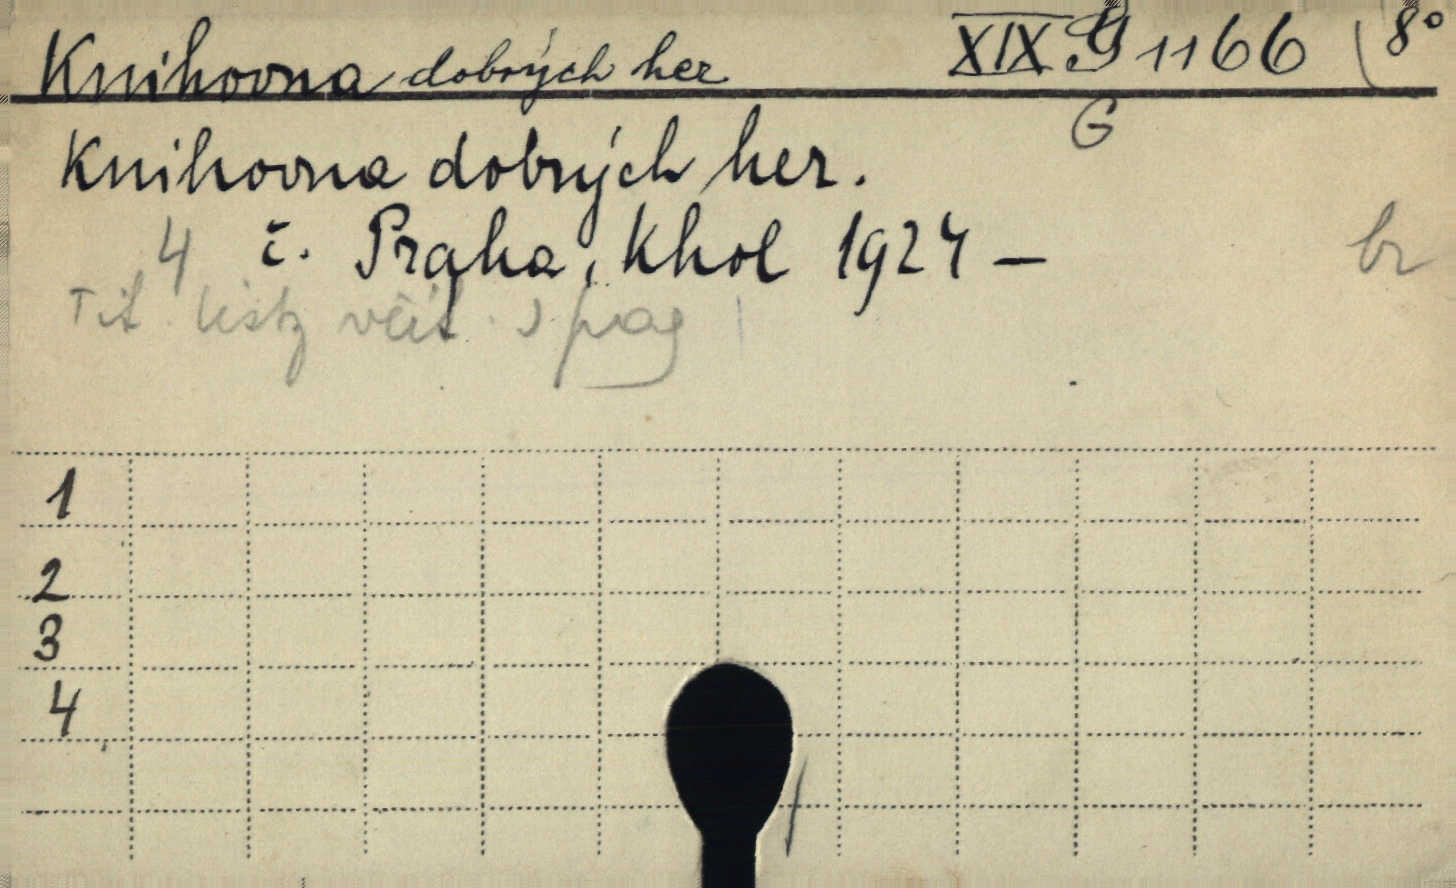 Knihovna dobrých her XIX G 1166 8°
G
Knihovna dobrých her.
4 č. Praha, Khol 1924 – br
Tit. listy včít. s pag
1
2
3
4